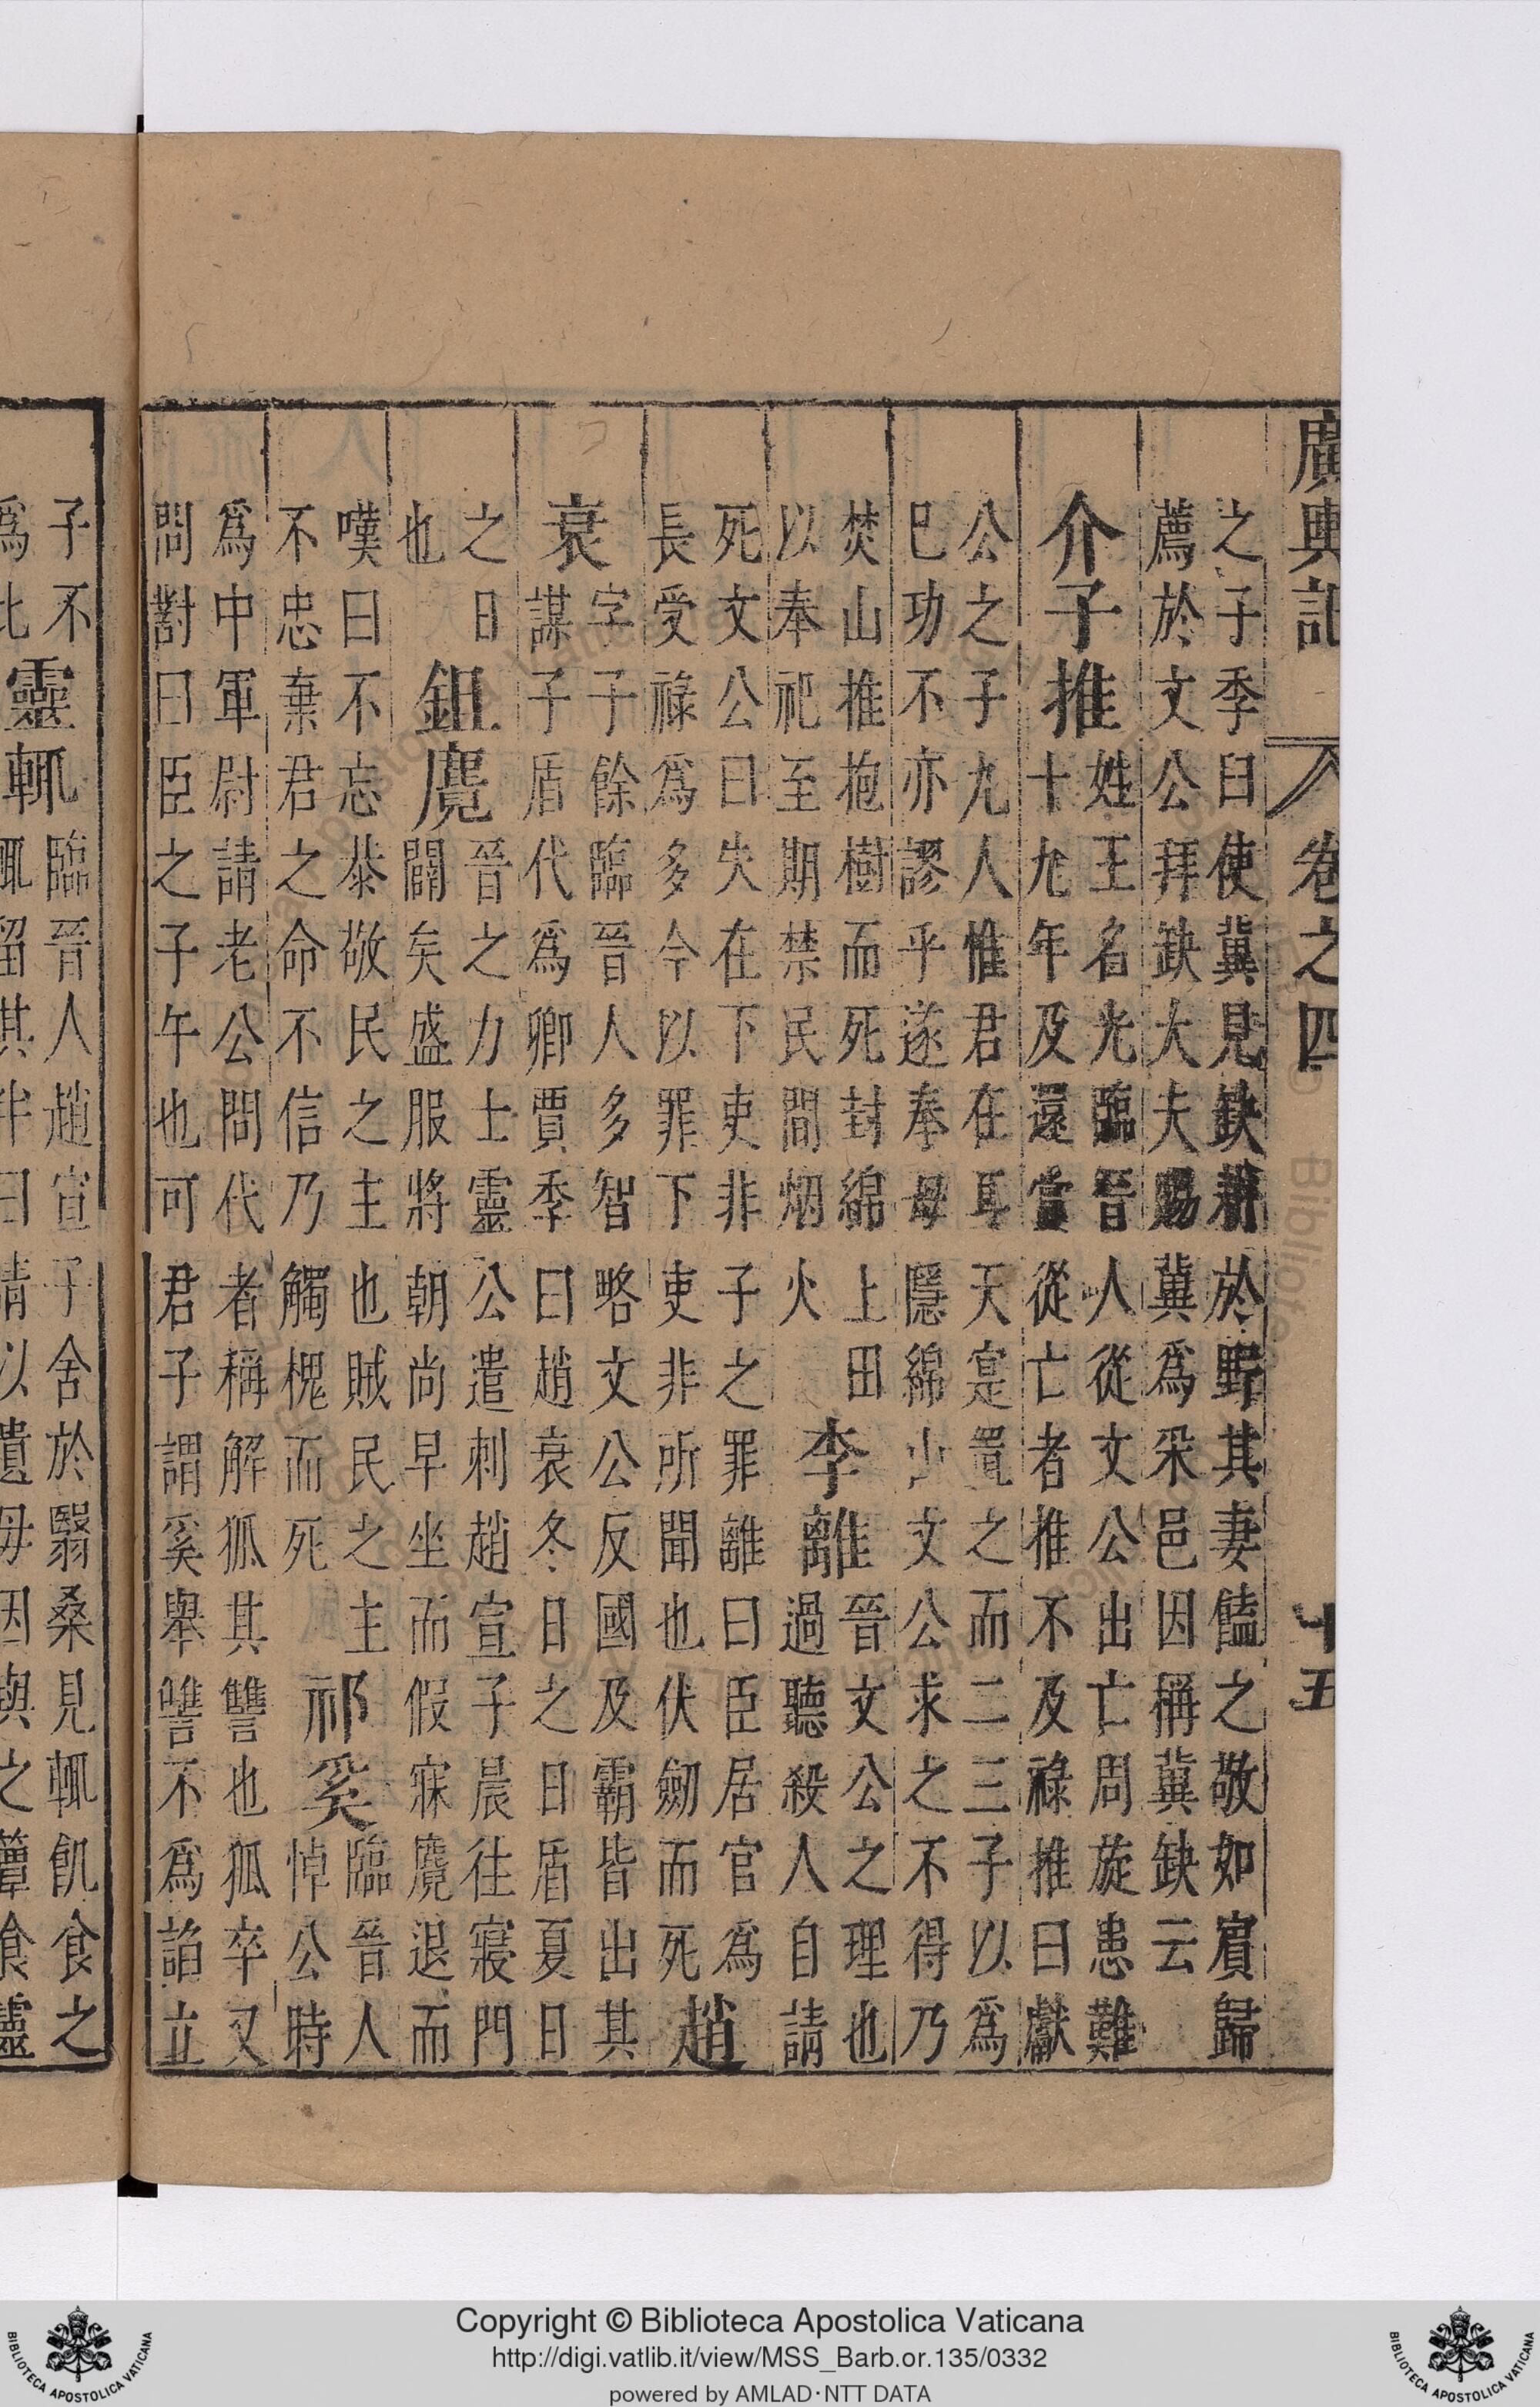 廣輿記 卷之四 十五
之子季臼使冀見缺耨於野其妻饁之敬如賔歸
薦於文公拜缺大夫賜冀爲采邑因稱冀缺云
介子推姓王名光臨晉人從文公出亡周旋患難
十九年及還當從亡者推不及祿推曰獻
公之子九人惟君在耳天寔置之而二三子以爲
巳功不亦謬乎遂奉母隱綿山文公求之不得乃
焚山推抱樹而死封綿上田李離晉文公之理也
以奉祀至期禁民間烟火過聽殺人自請
死文公曰失在下吏非子之罪離曰臣居官爲趙
長受祿爲多今以罪下吏非所聞也伏劒而死
衰字子餘臨晉人多智略文公反國及霸皆出其
謀子子盾代爲卿賈季曰趙衰冬日之日盾夏日
之日鉏麑晉之力士靈公遣刺趙宣子晨往寢門
也闢矣盛服將朝尚早坐而假寐麑退而
嘆曰不忘恭敬民之主也賊民之主祁奚臨晉人
不忠棄君之命不信乃觸槐而死悼公時
爲中軍尉請老公問代者稱解狐其讐也狐卒又
問對曰臣之子午也可君子謂奚舉讐不爲謟立
子不靈輒臨晉人趙宣子舍於翳桑見輒飢食之
爲比輒留其半曰請以遺母因與之簞食靈
Copyright © Biblioteca Apostolica Vaticana
http://digi.vatlib.it/view/MSS_Barb.or.135/0332
powered by AMLAD·NTT DATA
BIBLIOTECA APOSTOLICA VATICANA
BIBLIOTECA APOSTOLICA VATICANA